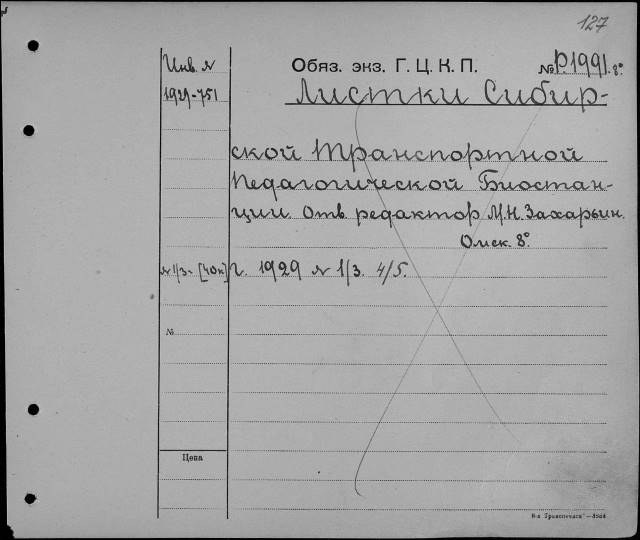 127
Инв. №
Обяз. экз. Г. Ц. К. П.
№ Р1991. 8°
1929-751
Листки Сибир-
ской Транспортной
Педагогической Биостан-
ции. Отв. редактор М.Н. Захарьин.
Омск. 8°.
№ 1/3- [40к]
г. 1929 № 1/3. 4/5.
№
Цена